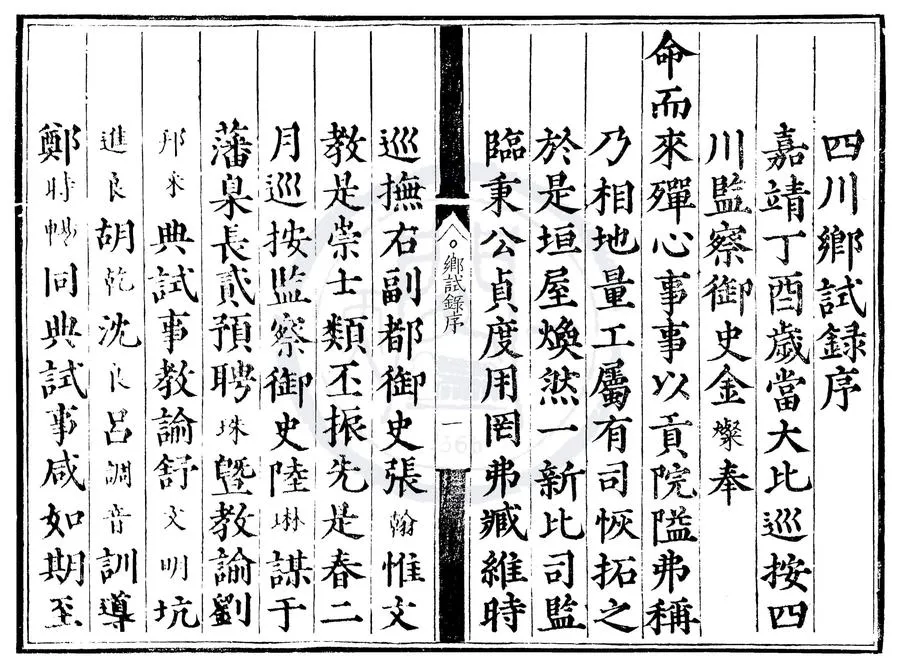 四川鄉試錄序
嘉靖丁酉歲當大比巡按四
川監察御史金燦奉
命而來殫心事事以貢院隘弗稱
乃相地量工屬有司恢拓之
於是垣屋煥然一新比司監
臨秉公貞度用罔弗臧維時
鄉試錄序 一
巡撫右副都御史張翰惟文
教是崇士類丕振先是春二
月巡按監察御史陸琳謀于
藩臬長貳預聘珠曁教論劉
邦來典試事教諭舒文明坑
進良胡乾沈良呂調音訓導
鄭時暢同典試事咸如期至